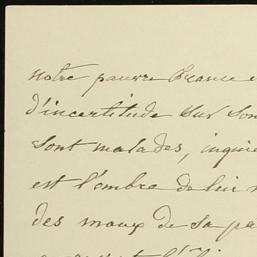 notre pauvre France e
d'incertitude sur son
sont malades, inquie
est l'ombre de lui
des maux de sa pa